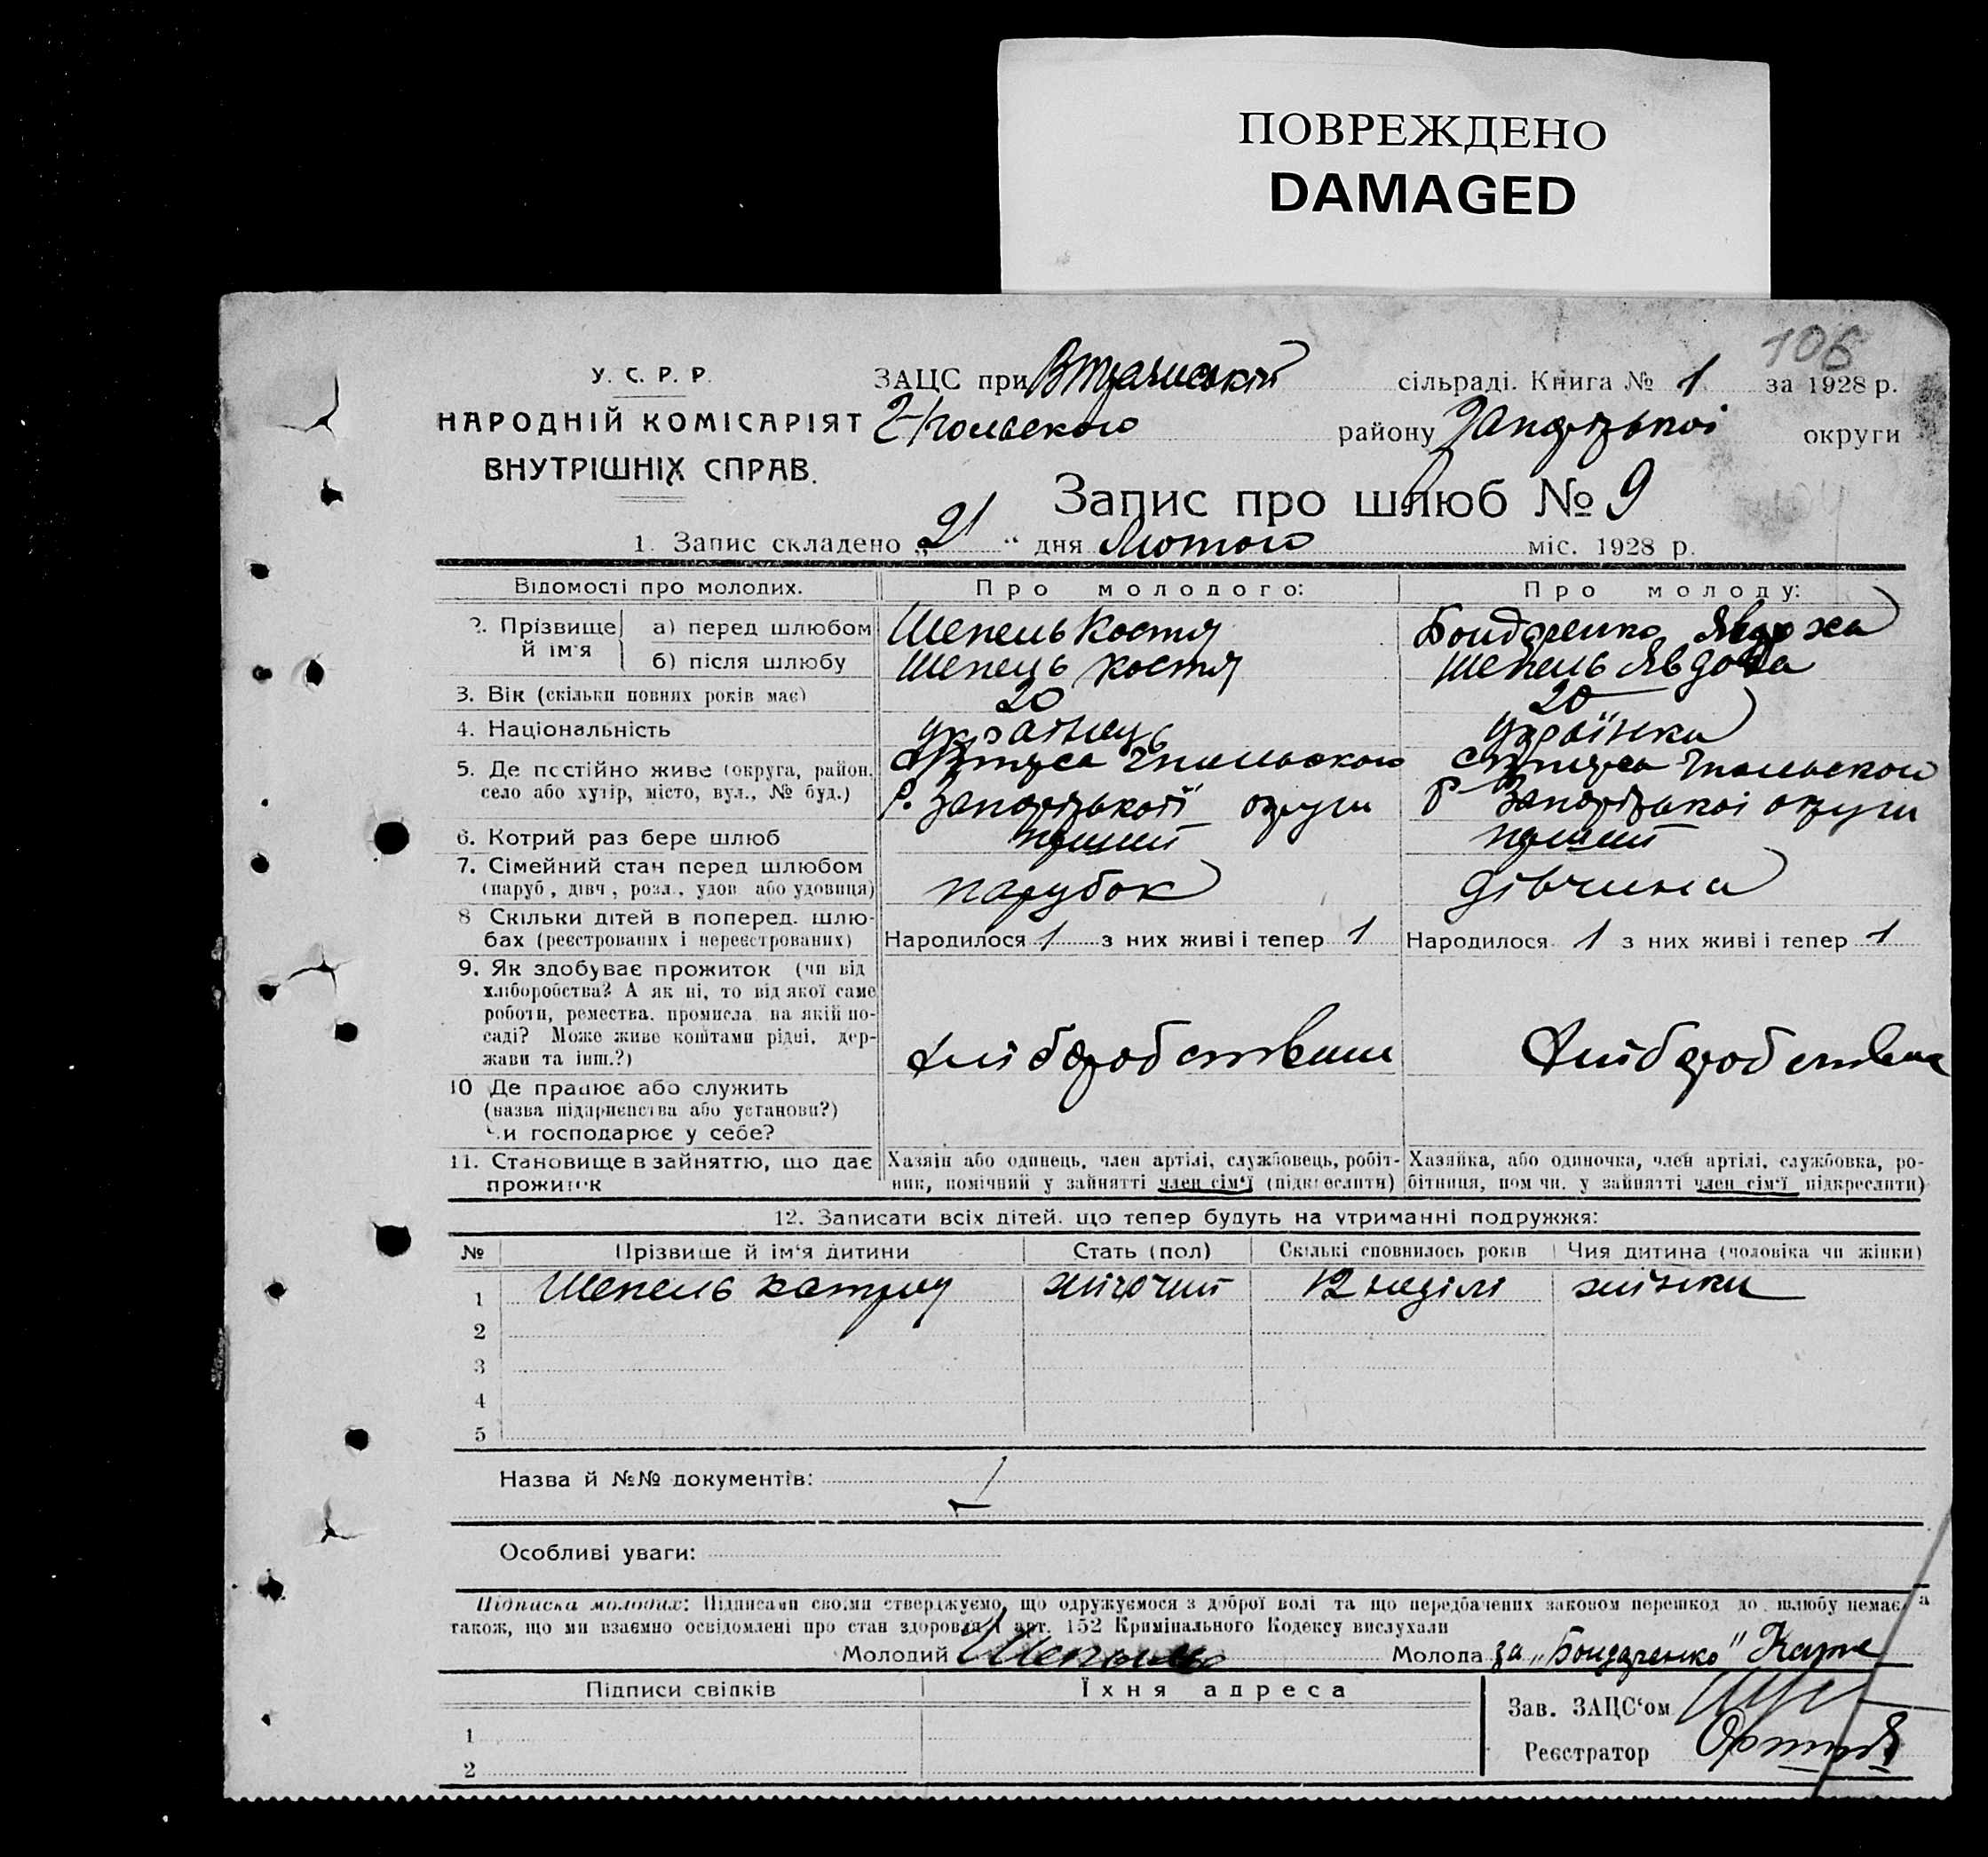 ПОВРЕЖДЕНО
DAMAGED
106
У. С. Р. Р.
НАРОДНІЙ КОМІСАРІЯТ
ВНУТРІШНІХ СПРАВ.
ЗАЦС при сільраді. Книга № 1 за 1928 р.
району Запорізької округи
Запис про шлюб № 9
1. Запис складено „21“ дня Лютого міс. 1928 р.
Відомості про молодих. Про молодого: Про молоду:
2. Прізвище й ім'я а) перед шлюбом Шепель Костя Бондаренко
б) після шлюбу Шепель Костя Шепель Явдоха
3. Вік (скільки повних років має) 20 20
4. Національність українець українка
5. Де постійно живе (округа, район,
село або хутір, місто, вул., № буд.) Р. Запорізької округи Р Запорізької округи
6. Котрий раз бере шлюб перший перший
7. Сімейний стан перед шлюбом
(паруб., дівч., розл., удов. або удовиця) парубок дівчина
8 Скільки дітей в поперед. шлю-
бах (реєстрованих і нереєстрованих) Народилося 1 з них живі і тепер 1 Народилося 1 з них живі і тепер 1
9. Як здобуває прожиток (чи від
хліборобства? А як ні, то від якої саме
роботи, ремества, промисла, на якій по-
саді? Може живе коштами рідні, дер-
жави та інш.?)
10 Де працює або служить
(назва підприємства або установи?)
Чи господарює у себе?
11. Становище в зайняттю, що дає
прожиток
Хазяїн або одинець, член артілі, службовець, робіт-
ник, помічний у зайнятті член сім'ї (підкреслити)
Хазяйка, або одиночка, член артілі, службовка, ро-
бітниця, помічн. у зайнятті член сім'ї підкреслити)
12. Записати всіх дітей, що тепер будуть на утриманні подружжя:
№ Прізвище й ім'я дитини Стать (пол) Скількі сповнилось років Чия дитина (чоловіка чи жінки)
1 Шепель Катря жіночий 12 неділі жінки
2
3
4
5
Назва й №№ документів:
Особливі уваги:
Підписка молодих: Підписами своїми стверджуємо, що одружуємося з доброї волі та що передбачених законом перешкод до шлюбу немає, а
також, що ми взаємно освідомлені про стан здоров'я і арт. 152 Кримінального Кодексу вислухали
Молодий Шепель Молода за „Бондаренко"
Підписи свідків Їхня адреса
Зав. ЗАЦС'ом
1
Реєстратор
2